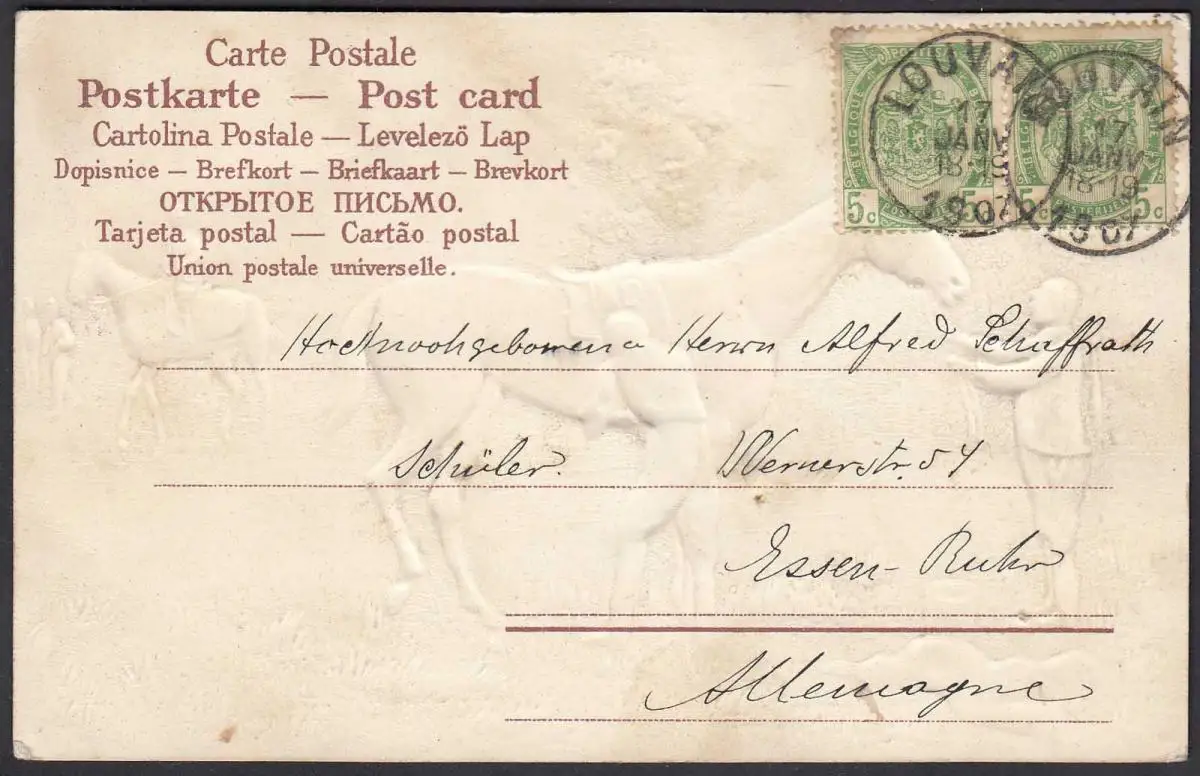 Carte Postale
Postkarte — Post card
Cartolina Postale — Levelező Lap
Dopisnice — Brefkort — Briefkaart — Brevkort
ОТКРЫТОЕ ПИСЬМО.
Tarjeta postal — Cartão postal
Union postale universelle.
LOUVAIN
17
JANV
18-19
1907
LOUVAIN
17
JANV
18-19
1907
BELGIQUE
5c
5c
BELGIQUE
5c
5c
Hochwohgeborenen Herrn Alfred Schaffrath
Schüler. Wernerstr. 54
Essen-Ruhr
Allemagne